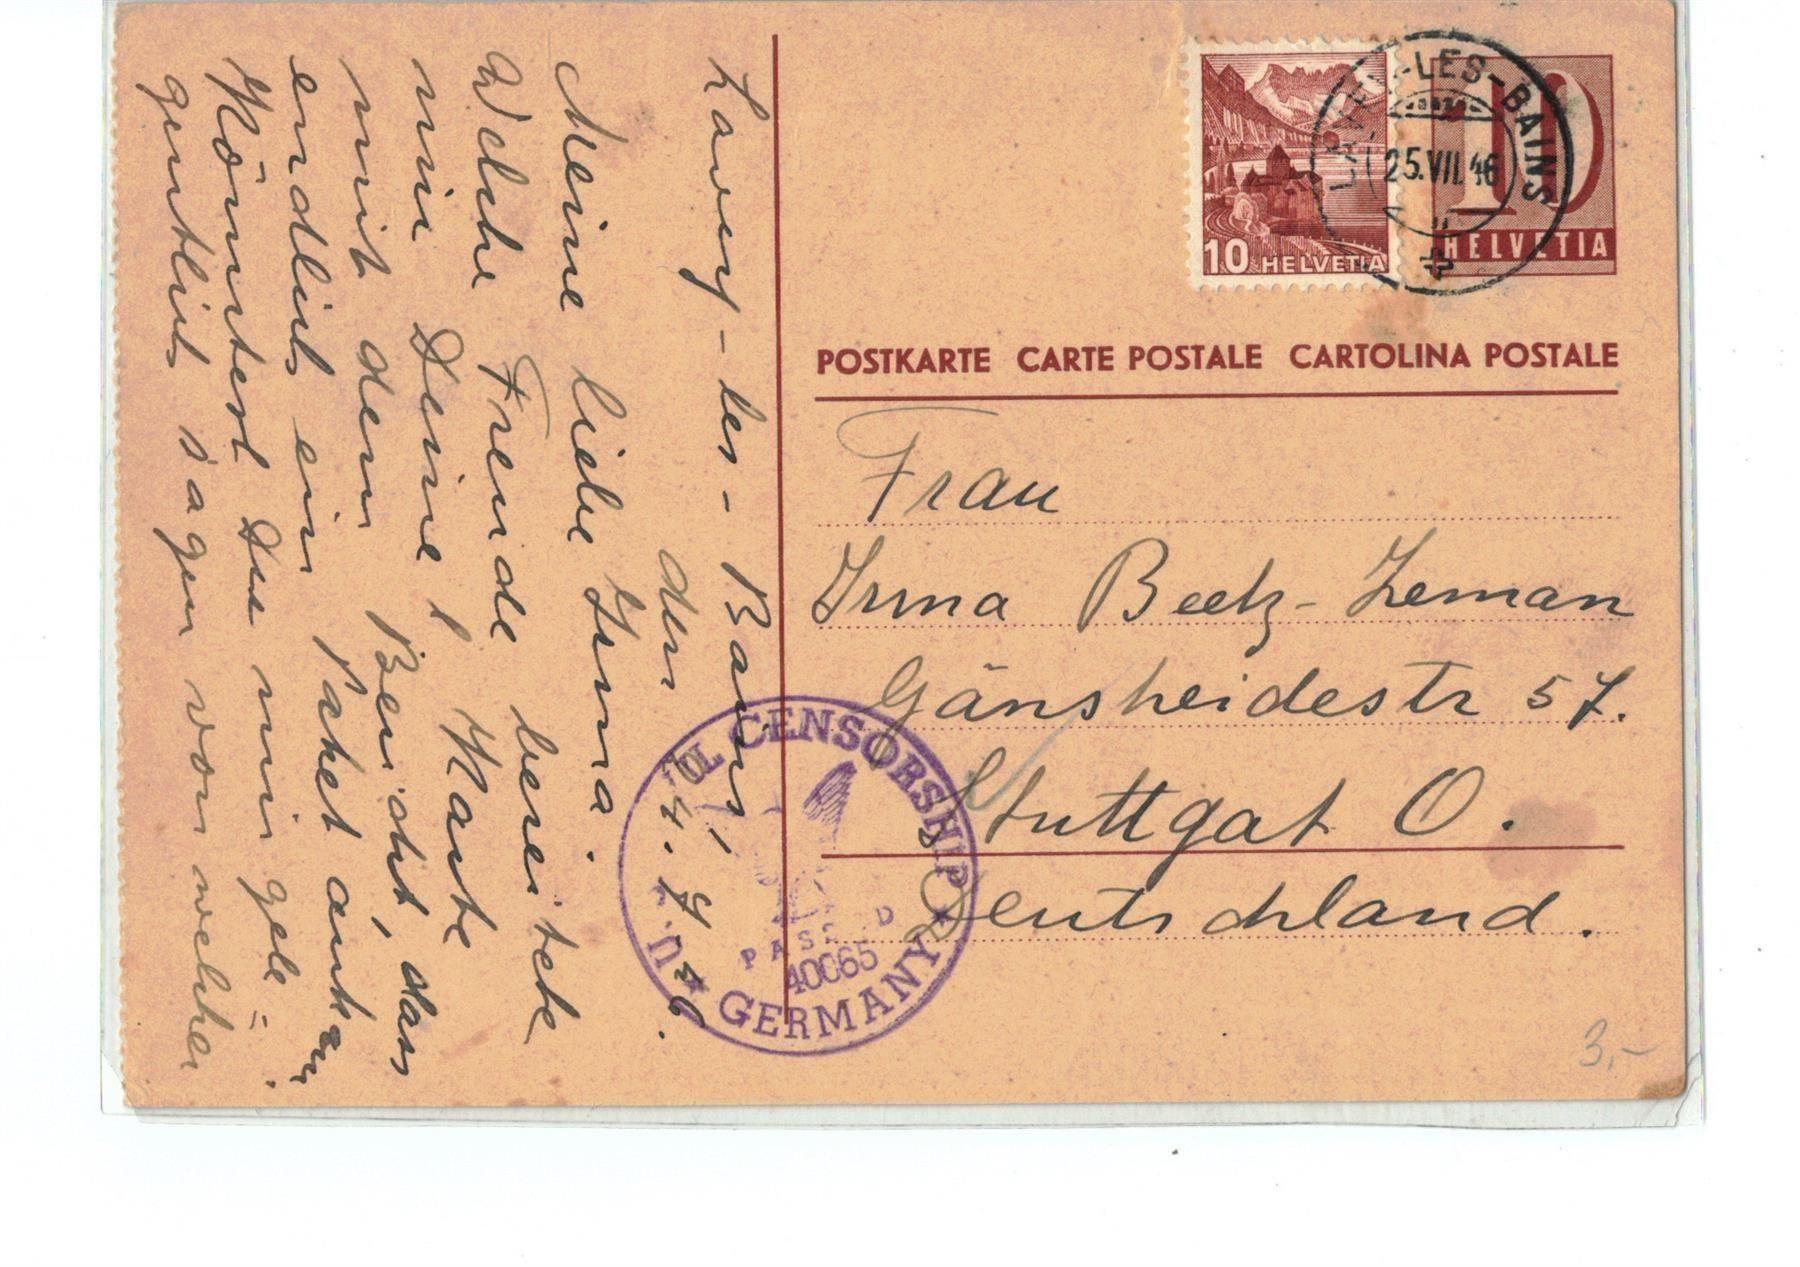 Lavey-les-Bains,
den 24.7.46.
Meine liebe Irma.
Welche Freude bereitete
mir Deine l. Karte
mit dem Bericht, dass
endlich ein Paket ankam.
Könntest Du mir gele=
gentlich sagen von welcher
10 HELVETIA
10
HELVETIA
LAVEY-LES-BAINS
25.VII.46
POSTKARTE CARTE POSTALE CARTOLINA POSTALE
Frau
Irma Beetz-Zeman
Gänsheidestr 57.
Stuttgat O.
Deutschland.
CIVIL CENSORSHIP
PASSED
40065
GERMANY
3,-